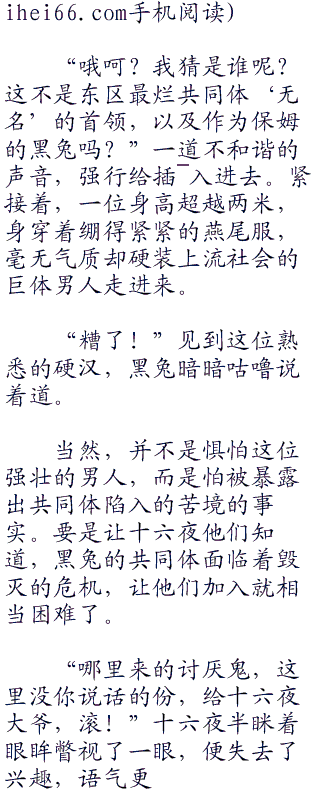 ihei66.com手机阅读)
“哦呵？我猜是谁呢？
这不是东区最烂共同体‘无
名’的首领，以及作为保姆
的黑兔吗？”一道不和谐的
声音，强行给插¯入进去。紧
接着，一位身高超越两米，
身穿着绷得紧紧的燕尾服，
毫无气质却硬装上流社会的
巨体男人走进来。
“糟了！”见到这位熟
悉的硬汉，黑兔暗暗咕噜说
着道。
当然，并不是惧怕这位
强壮的男人，而是怕被暴露
出共同体陷入的苦境的事
实。要是让十六夜他们知
道，黑兔的共同体面临着毁
灭的危机，让他们加入就相
当困难了。
“哪里来的讨厌鬼，这
里没你说话的份，给十六夜
大爷，滚！”十六夜半眯着
眼眸瞥视了一眼，便失去了
兴趣，语气更